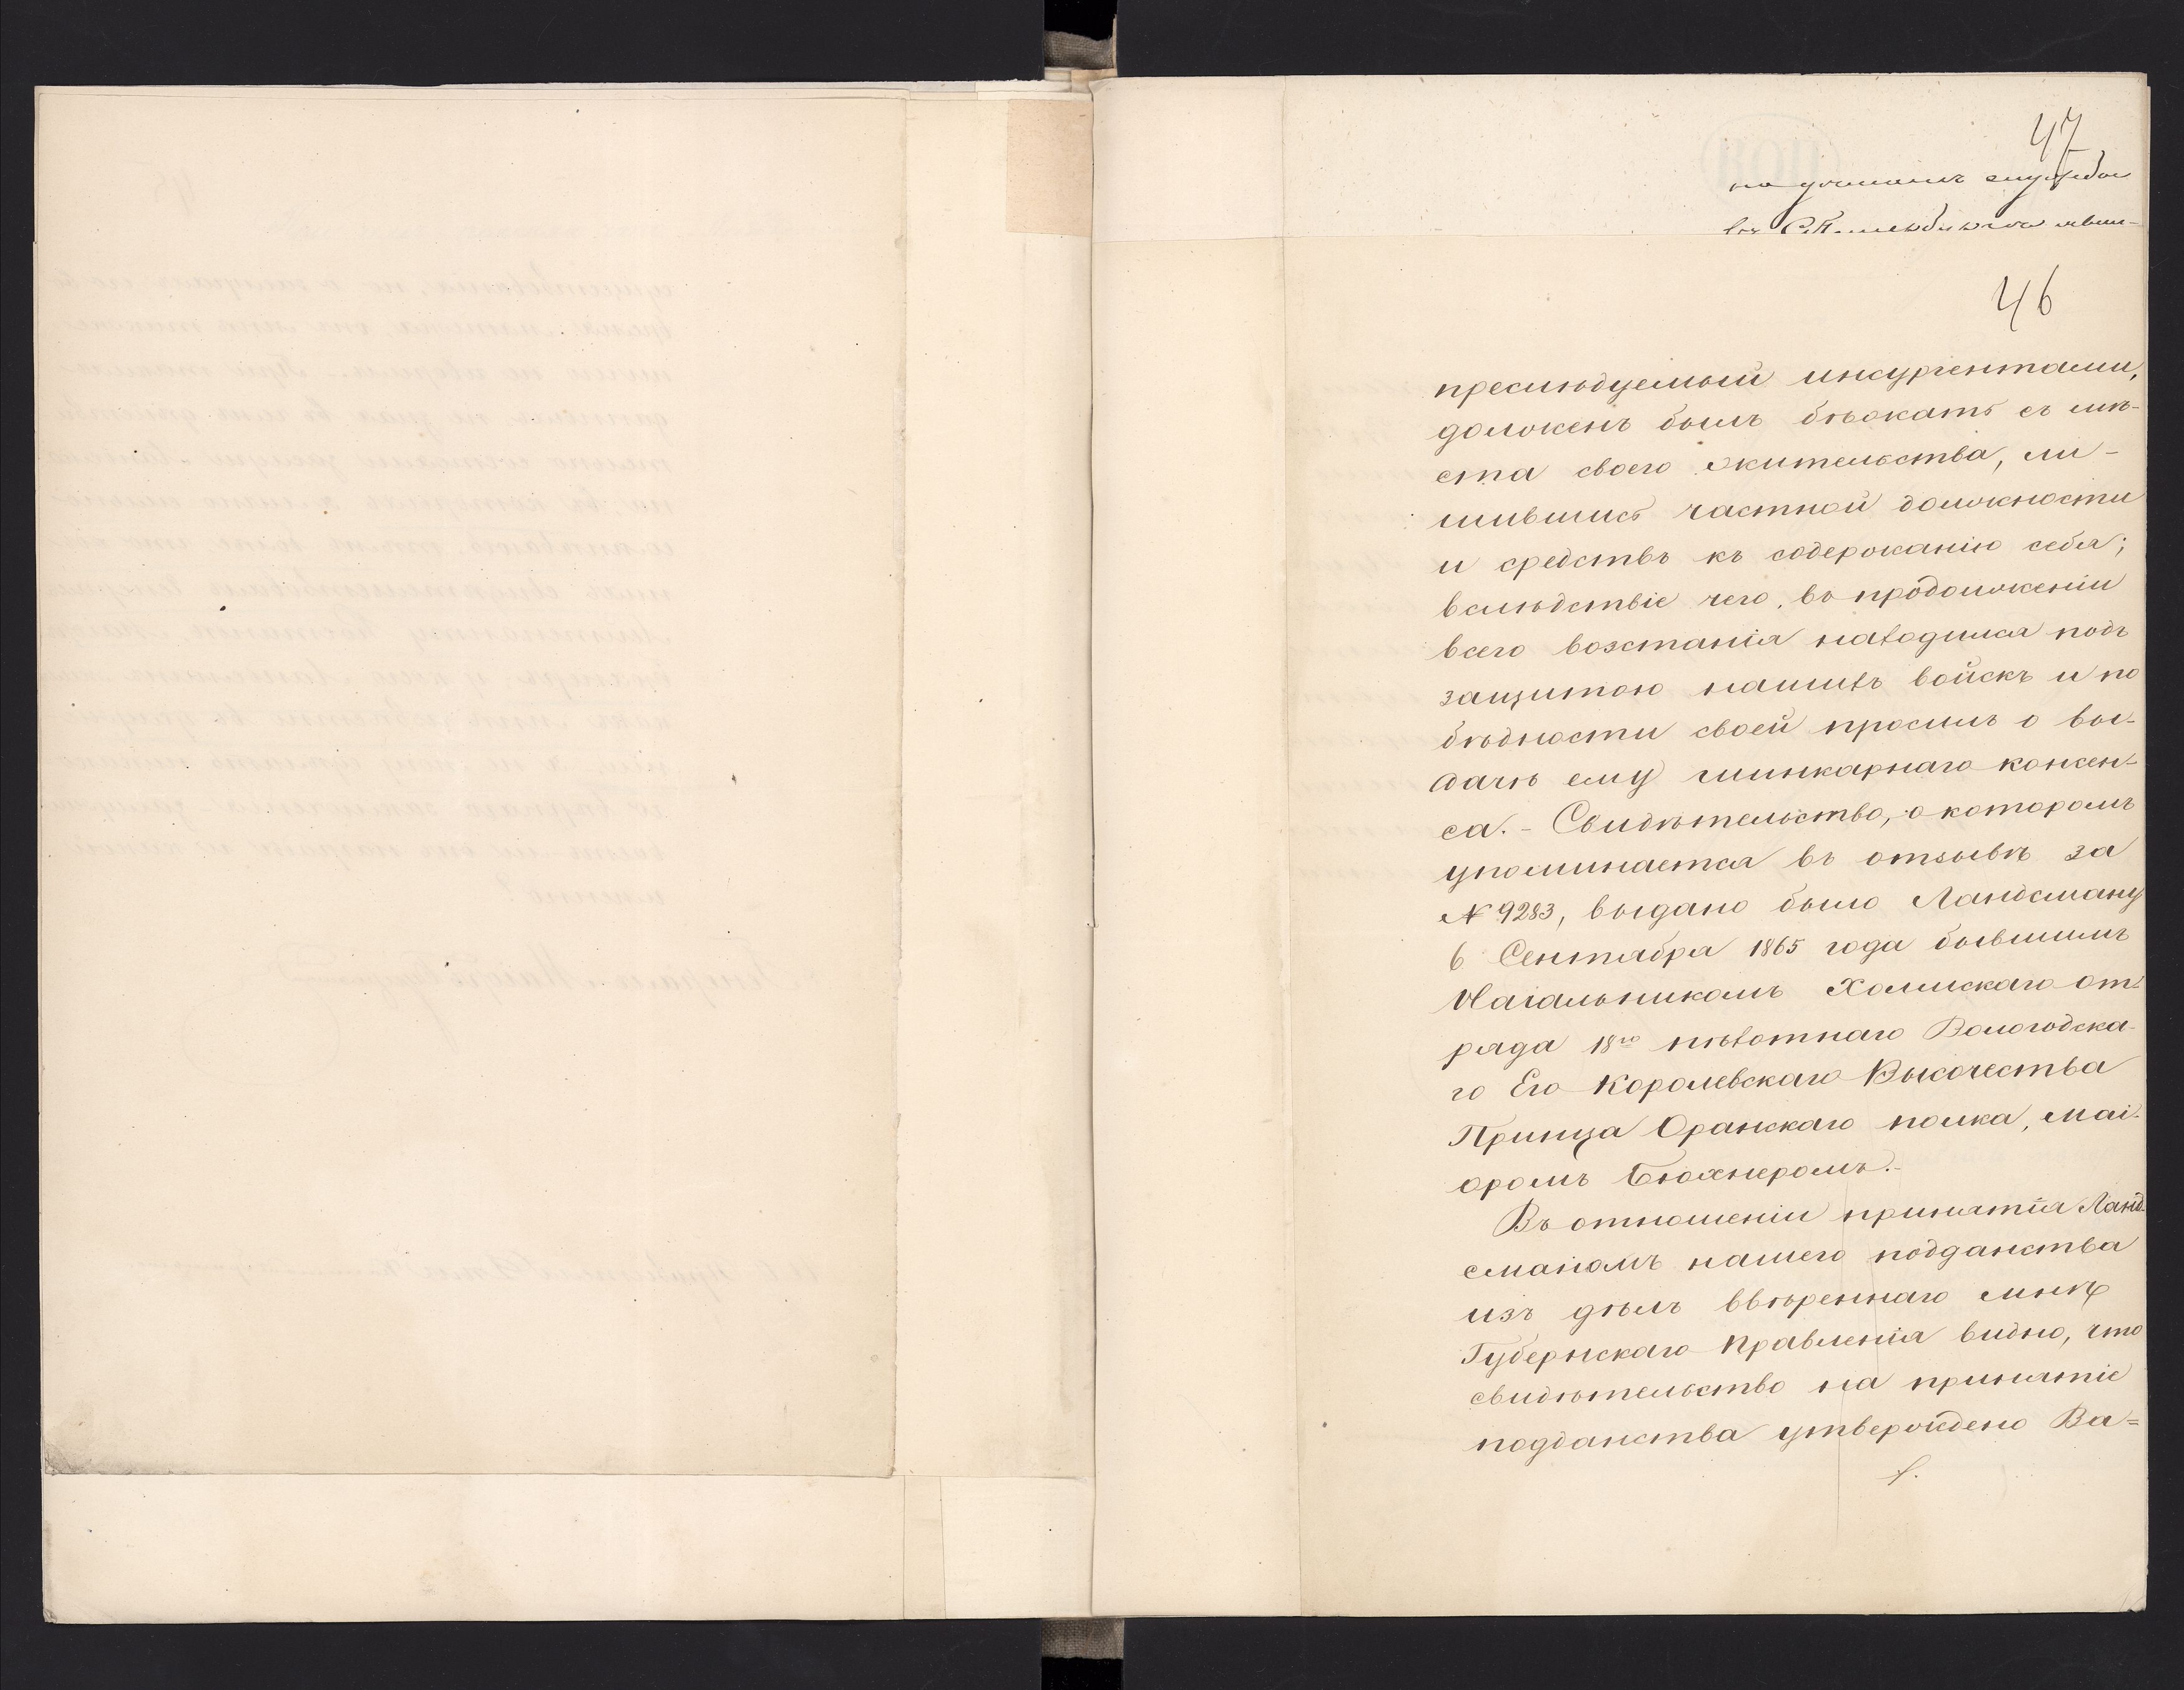 47
на
46
преслѣдуемый инсургентами,
долженъ былъ бѣжать съ мѣ-
ста своего жительства, ли-
шившись частной должности
и средствъ къ содержанію себя;
вслѣдствіе чего, въ продолженіи
всего возстанія находился подъ
защитою нашихъ войскъ и по
бѣдности своей просилъ о вы-
дачѣ ему шинкарнаго консен-
са. - Свидѣтельство, о которомъ
упоминается въ отзывѣ за
№ 9283, выдано было Ландсману
6 Сентября 1865 года бывшимъ
Начальникомъ Холмскаго от-
ряда 18го пѣхотнаго Вологодска-
го Его Королевскаго Высочества
Принца Оранскаго полка, маі-
оромъ Бюхнеромъ.-
Въ отношеніи принятія Ланд-
сманомъ нашего подданства
изъ дѣлъ ввѣреннаго мнѣ
Губернскаго Правленія видно, что
свидѣтельство на принятіе
подданства утверждено Ва=